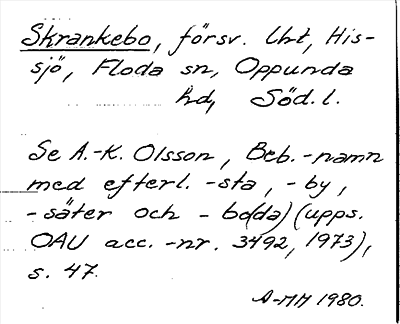 Skrankebo, försv. lht, His-
sjö, Floda sn, Oppunda
hd, Söd. l.
Se A.-K. Olsson, Beb.-namn
med efterl. -sta, -by,
-säter och -bo(da) (upps.
OAU acc.-nr. 3492, 1973),
s. 47.
A-MH 1980.